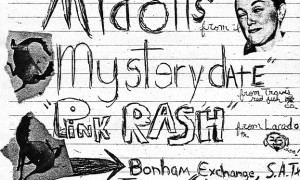 Midolls
from
Mystery DATE"
from Travis
"PiNK RASH"
from Laredo
Tx
Bonham Exchange, S.A.Tx